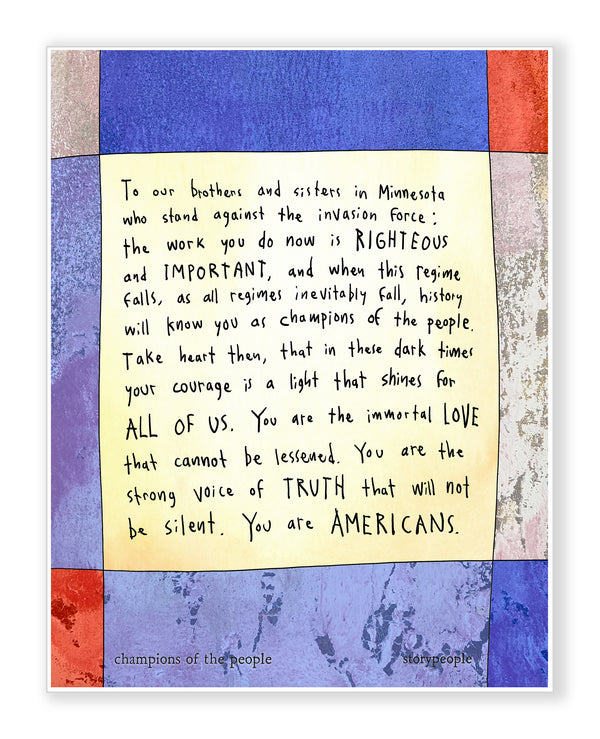 To our brothers and sisters in Minnesota
who stand against the invasion force:
the work you do now is RIGHTEOUS
and IMPORTANT, and when this regime
falls, as all regimes inevitably fall, history
will know you as champions of the people.
Take heart then, that in these dark times
your courage is a light that shines for
ALL OF US. You are the immortal LOVE
that cannot be lessened. You are the
strong voice of TRUTH that will not
be silent. You are AMERICANS.
champions of the people storypeople